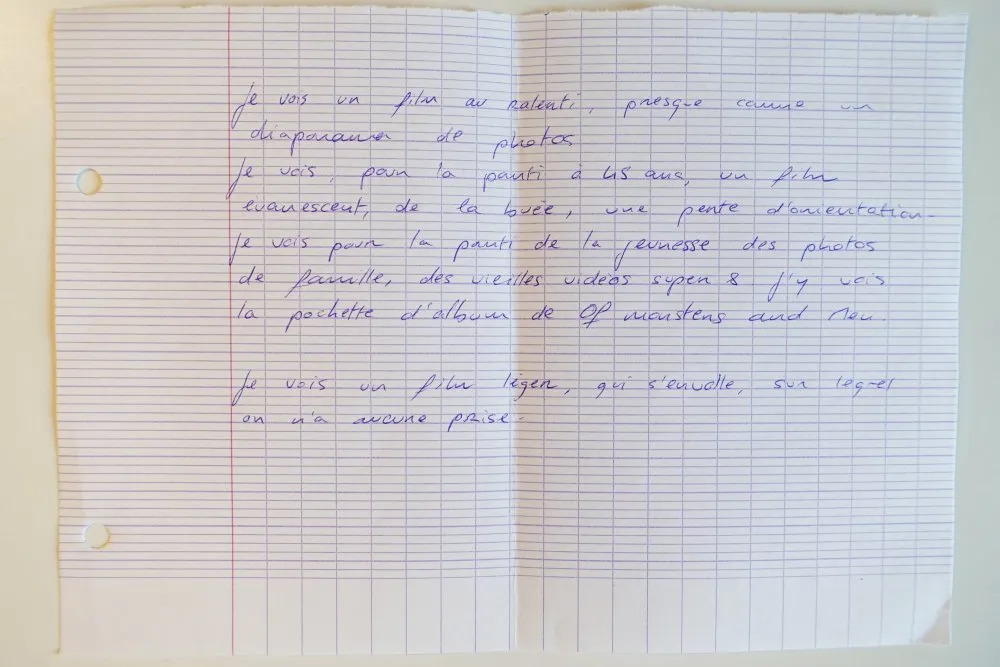 Je vois un film au ralenti, presque comme un
diaporama de photos
Je vois, pour la parti à 45 ans, un film
évanescent, de la buée, une perte d'orientation.
Je vois pour la parti de la jeunesse des photos
de famille, des vieilles vidéos super 8 j'y vois
la pochette d'album de Of monsters and Men.
Je vois un film léger, qui s'envolle, sur lequel
on n'a aucune prise.